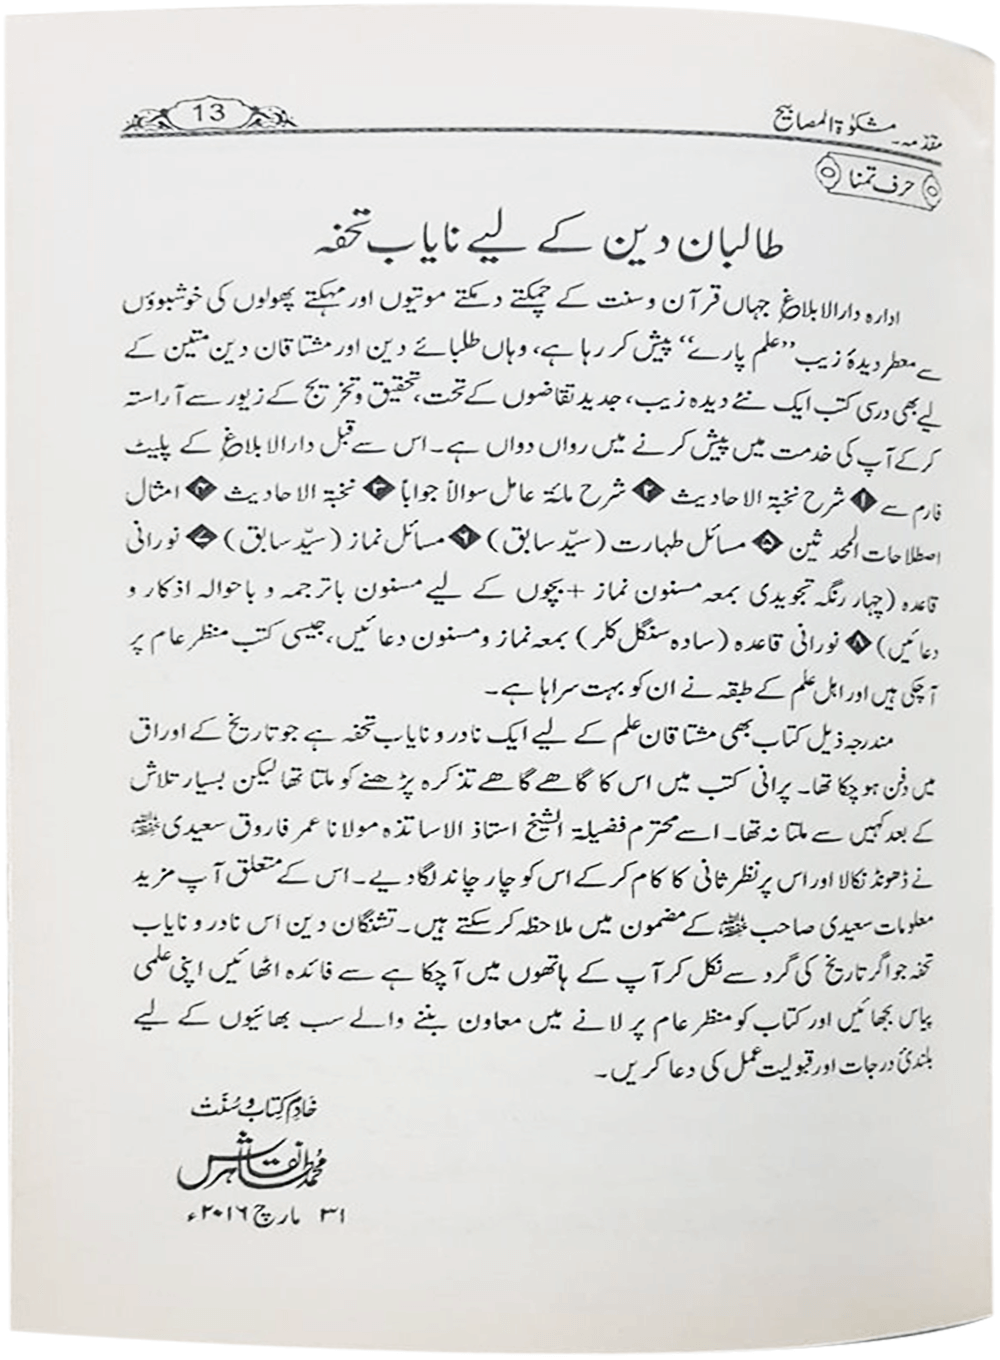 13
مقدمہ۔ مشکوٰۃ المصابیح
حرف تمنا
طالبان دین کے لیے نایاب تحفہ
ادارہ دارالابلاغ جہاں قرآن و سنت کے چمکتے دمکتے موتیوں اور مہکتے پھولوں کی خوشبوؤں
سے معطر دیدۂ زیب ’’علم پارے‘‘ پیش کر رہا ہے، وہاں طلبائے دین اور مشتاقان دین متین کے
لیے بھی درسی کتب ایک نئے دیدہ زیب، جدید تقاضوں کے تحت، تحقیق و تخریج کے زیور سے آراستہ
کر کے آپ کی خدمت میں پیش کرنے میں رواں دواں ہے۔ اس سے قبل دارالابلاغ کے پلیٹ
فارم سے ۱ شرح نخبۃ الاحادیث ۲ شرح مائۃ عامل سوالاً جواباً ۳ نخبۃ الاحادیث ۴ امثال
اصطلاحات المحدثین ۵ مسائل طہارت (سیّد سابق) ۶ مسائل نماز (سیّد سابق) ۷ نورانی
قاعدہ (چہار رنگہ تجویدی بمعہ مسنون نماز + بچوں کے لیے مسنون باترجمہ و باحوالہ اذکار و
دعائیں) ۸ نورانی قاعدہ (سادہ سنگل کلر) بمعہ نماز و مسنون دعائیں، جیسی کتب منظر عام پر
آچکی ہیں اور اہل علم کے طبقہ نے ان کو بہت سراہا ہے۔
مندرجہ ذیل کتاب بھی مشتاقان علم کے لیے ایک نادر و نایاب تحفہ ہے جو تاریخ کے اوراق
میں دفن ہو چکا تھا۔ پرانی کتب میں اس کا گاھے گاھے تذکرہ پڑھنے کو ملتا تھا لیکن بسیار تلاش
کے بعد کہیں سے ملتا نہ تھا۔ اسے محترم فضیلۃ الشیخ استاذ الاساتذہ مولانا عمر فاروق سعیدی حفظہ اللہ
نے ڈھونڈ نکالا اور اس پر نظر ثانی کا کام کر کے اس کو چار چاند لگا دیے۔ اس کے متعلق آپ مزید
معلومات سعیدی صاحب حفظہ اللہ کے مضمون میں ملاحظہ کر سکتے ہیں۔ تشنگان دین اس نادر و نایاب
تحفہ جو اگر تاریخ کی گرد سے نکل کر آپ کے ہاتھوں میں آچکا ہے سے فائدہ اٹھائیں اپنی علمی
پیاس بجھائیں اور کتاب کو منظر عام پر لانے میں معاون بننے والے سب بھائیوں کے لیے
بلندیٔ درجات اور قبولیت عمل کی دعا کریں۔
خادم کتاب و سنّت
محمد طاہر نقاش
۳۱ مارچ ۲۰۱۶ء